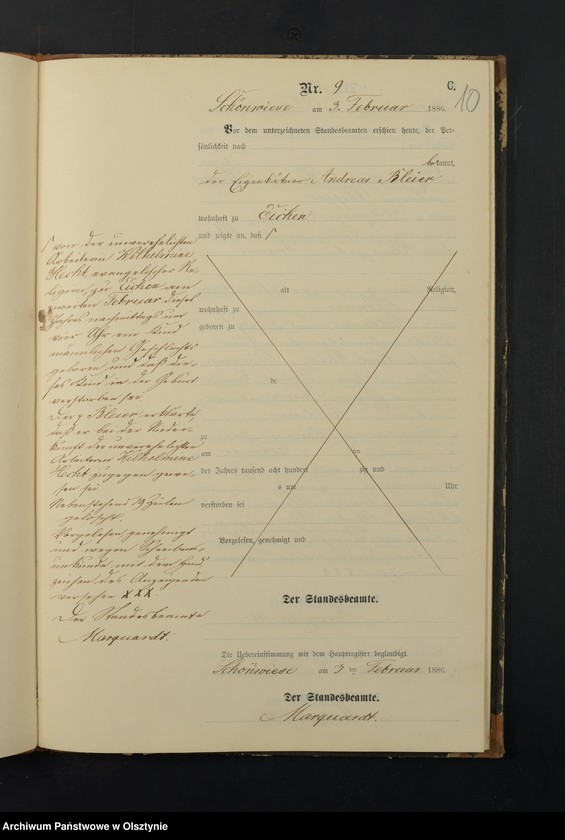 Nr. 9
C.
10
Schönwiese am 3. Februar 1886.
Vor dem unterzeichneten Standesbeamten erschien heute, der Per-
sönlichkeit nach
bekannt,
der Eigenkätner Andreas Bleier
wohnhaft zu Eichen
und zeigte an, daß
von der unverehelichten
Arbeiterin Wilhelmine
Hecht, evangelischer Re-
ligion, zu Eichen am
zweiten Februar dieses
Jahres nachmittags um
vier Uhr ein Kind
männlichen Geschlechts
geboren und daß die-
ses Kind in der Geburt
verstorben sei.
Der p Bleier erklärte
daß er bei der Nieder-
kunft der unverehelichten
Arbeiterin Wilhelmine
Hecht zugegen gewe-
sen sei
Nebenstehend 19 Zeilen
gelöscht.
Vorgelesen, genehmigt
und wegen Schreibens-
unkunde mit dem Hand
zeichen des Anzeigenden
versehen XXX
Der Standesbeamte
Marquardt.
alt Religion,
wohnhaft zu
geboren zu
de
zu
am
des Jahres tausend acht hundert und
um Uhr
verstorben sei
Vorgelesen, genehmigt und
Der Standesbeamte.
Die Uebereinstimmung mit dem Hauptregister beglaubigt.
Schönwiese am 3 ten Februar 1886.
Der Standesbeamte.
Marquardt.
Archiwum Państwowe w Olsztynie